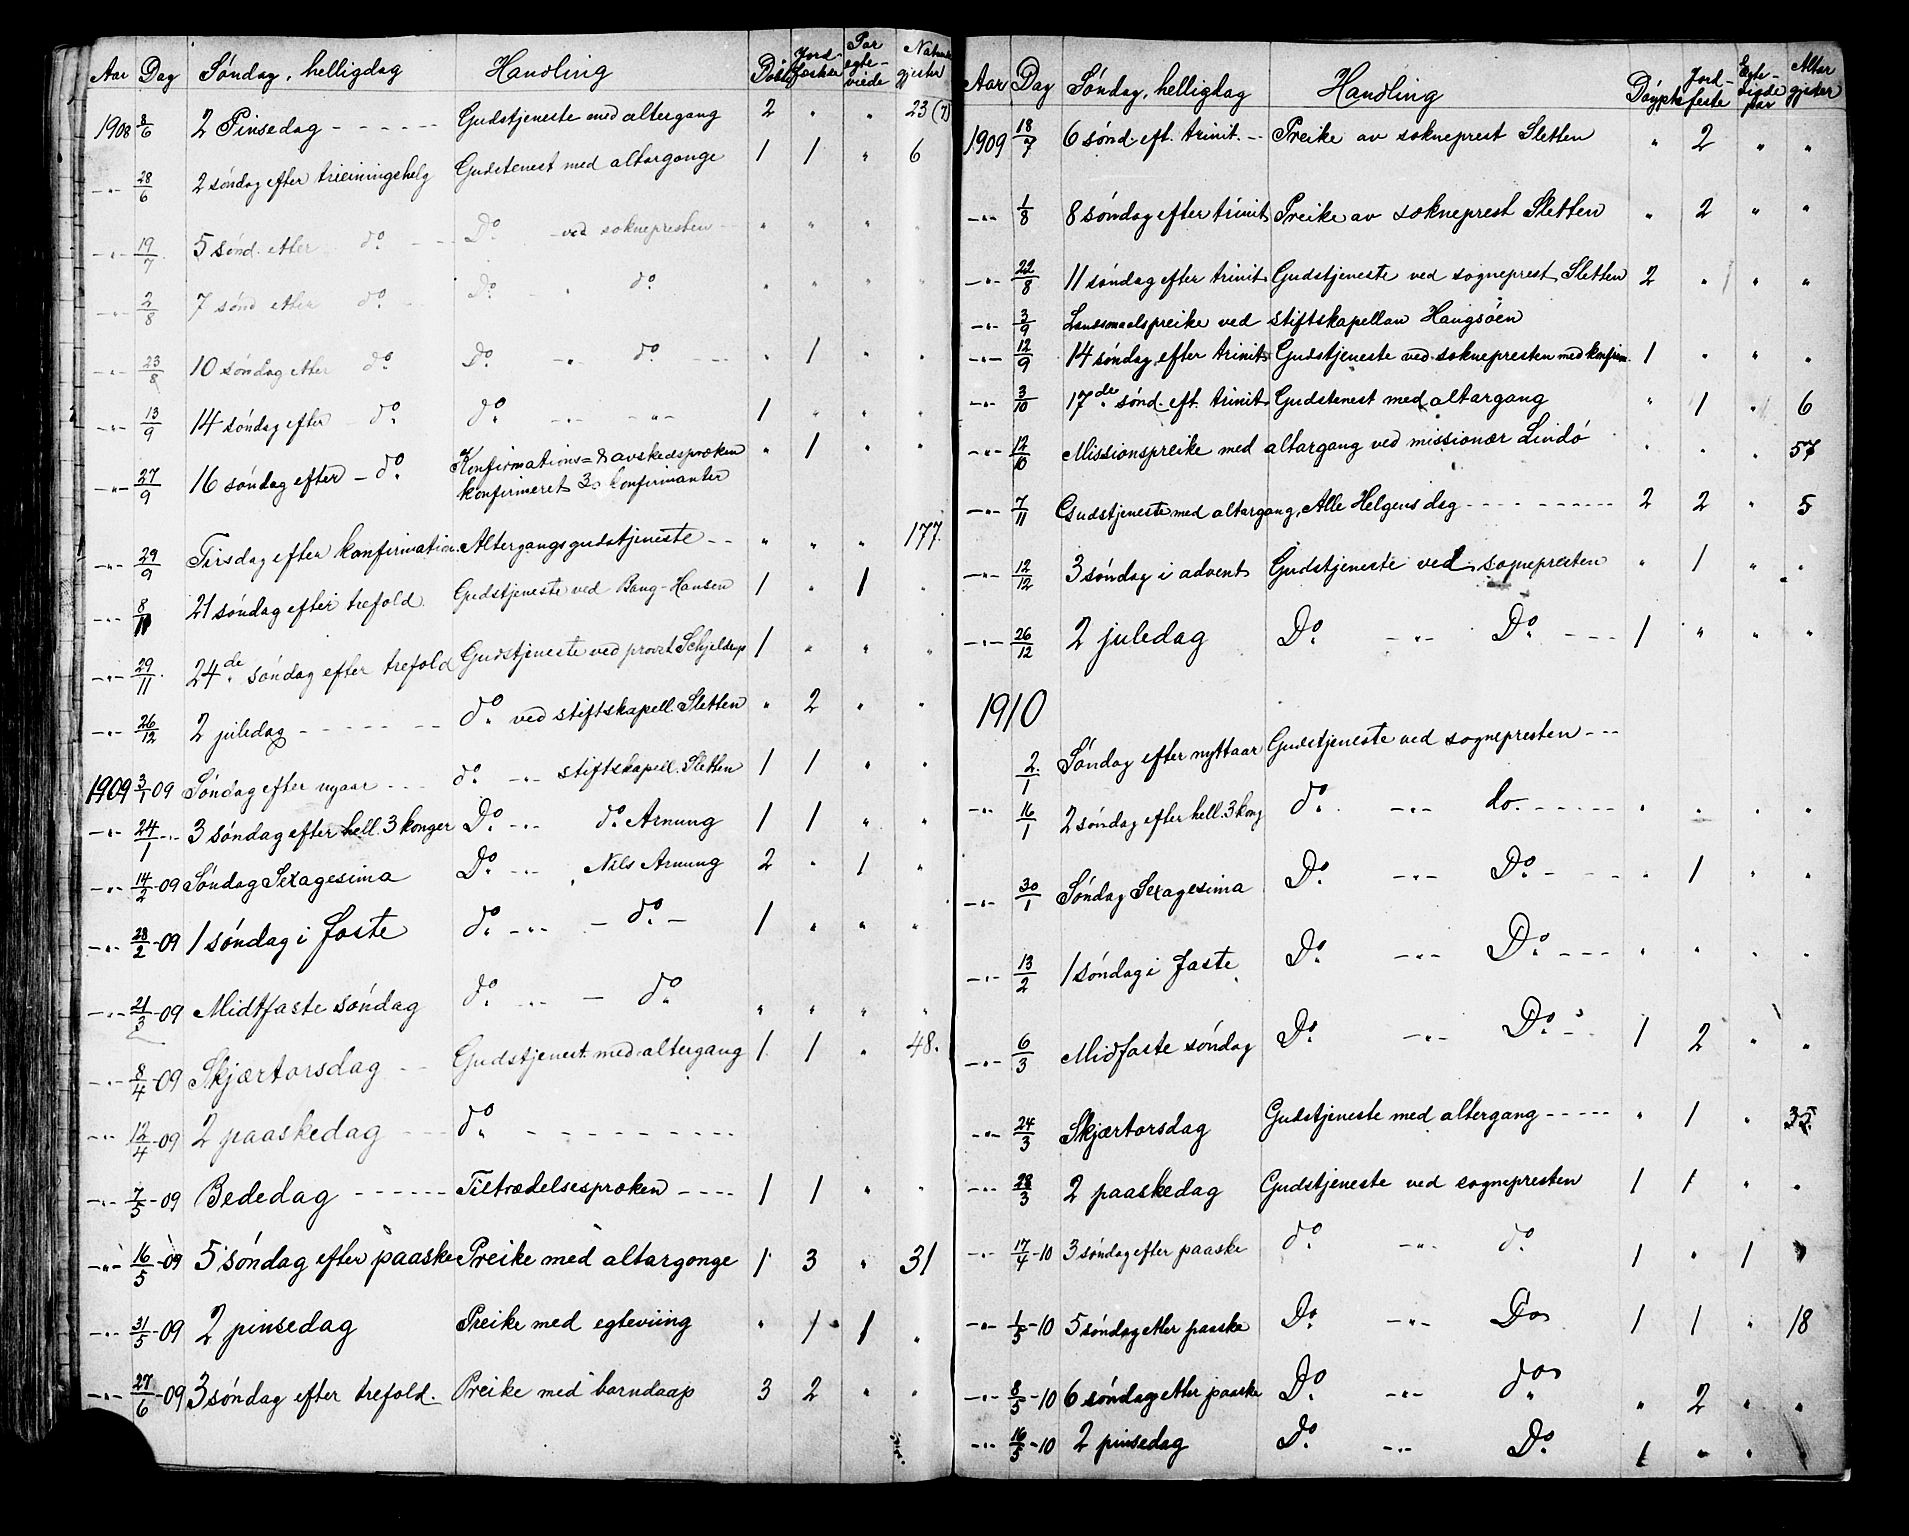 Aar Dag Søndag, helligdag Handling Døbte Jord-fæstede Par egte-viede Natver-gjester
1908 8/6 2 Pinsedag - - - - - - Gudstjeneste med altergang 2 " " 23 (7)
-"- 28/6 2 søndag efter treiningshelg Gudstenest med altargonge 1 1 " 6
-"- 19/7 5 sønd. etter do - - Do ved soknepresten - - " " " "
-"- 2/8 7 sønd etter do - - Do - " do " " " "
-"- 23/8 10 søndag etter do Do -"- do - - - " 1 " "
-"- 13/9 14 søndag efter - do do -"- -"- 1 " " "
-"- 27/9 16 søndag efter - do Konfirmations= & avskedspræken " 1 " "
konfirmeret 30 konfirmanter
-"- 29/9 Tirsdag efter konfirmation. Altergangsgudstjeneste - - " " " 177.
-"- 8/11 21 søndag efter trefold. Gudstjeneste ved Bang-Hansen 1 " 1 "
-"- 29/11 24de søndag efter trefold Gudstjeneste ved provst Schjelderup 1 " " "
-"- 26/12 2 juledag - - - - - - do ved stiftskapell. Sletten " 2 " "
1909 3/1 09 Søndag efter nyaar - - - do -"- stiftskapell. Sletten 1 1 " "
-"- 24/1 -"- 3 søndag efter hell. 3 konger Do -"- do Arnung 1 1 " "
-"- 14/2 -09 Søndag Sexagesima Do -"- Nils Arnung 2 " 1 "
-"- 28/2 -09 1 søndag i faste do -"- - do - 1 " " "
-"- 21/3 -09 Midtfaste søndag do -"- - do " " " "
-"- 8/4 -09 Skjærtorsdag - - Gudstjenest. med altergang 1 1 " 48.
-"- 12/4 -09 2 paaskedag - - - do - - - - - - - - -
-"- 7/5 -09 Bededag - - - - - - Tiltrædelsespræken - - - - 1 1 " "
-"- 16/5 -09 5 søndag efter paaske Preike med altargonge 1 3 " 31
-"- 31/5 -09 2 pinsedag Preike med egteviing " 1 1 "
-"- 27/6 -09 3 søndag efter trefold. Preike med barndaap 3 2 " "
Aar Dag Søndag, helligdag Handling Døypte Jord-feste Egte-vigde par Altar gjester
1909 18/7 6 sønd. eft. trinit. - - Preike av sokneprest Sletten " 2 " "
-"- 1/8 8 søndag efter trinit. Preike av sokneprest Sletten " 2 " "
-"- 22/8 11 søndag efter trinit. Gudstjeneste ved sogneprest Sletten 2 " " "
-"- 3/9 Landsmaalspreike ved stiftskapellan Haugsøen
-"- 12/9 14 søndag efter trinit. Gudstjeneste ved soknepresten med konfirm. 1 " " "
-"- 3/10 17de sønd. eft. trinit. Gudstenest med altargang " 1 " 6
-"- 12/10 Missionspreike med altargang ved missionær Lindø " " " 57
-"- 7/11 Gudstjeneste med altargang, Alle Helgens dag - - - - - - - - - - 2 2 " 5
-"- 12/12 3 søndag i advent Gudstjeneste ved sognepresten " 1 " "
-"- 26/12 2 juledag Do -"- Do - - - 1 " " "
1910
2/1 Søndag efter nyttaar Gudstjeneste ved sognepresten - - -
-"- 16/1 2 søndag efter hell. 3 kong do -"- do. - - - - - " " " "
-"- 30/1 Søndag Sexagesima Do -"- Do - - - - " 1 " "
-"- 13/2 1 søndag i faste Do -"- Do - - - - " " " "
-"- 6/3 Midfaste søndag Do -"- Do - - 1 2 " "
-"- 24/3 Skjærtorsdag Gudstjeneste med altergang - - - - - " 1 " 35.
-"- 28/3 2 paaskedag Gudstjeneste ved sognepresten 1 1 " "
-"- 17/4 -10 3 søndag efter paaske do -"- do 1 " 1 "
-"- 1/5 -10 5 søndag etter paaske Do -"- Do 1 1 " 18
-"- 8/5 -10 6 søndag etter paaske Do -"- do " 2 " "
-"- 16/5 -10 2 pinsedag Do -"- Do 1 " "